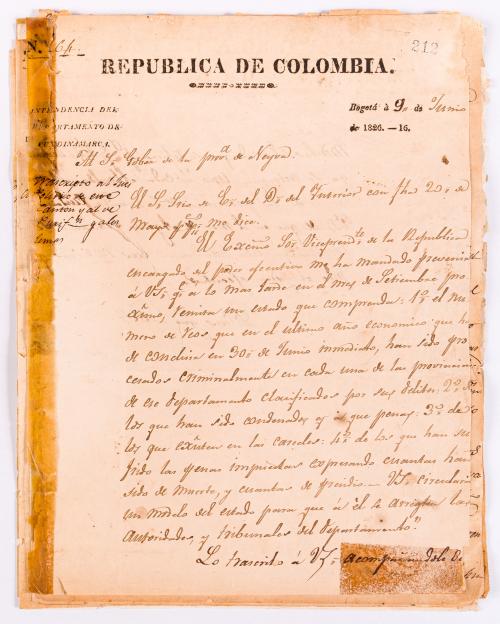 N. 164.
212
REPUBLICA DE COLOMBIA.
INTENDENCIA DEL
DEPARTAMENTO DE
CUNDINAMARCA.
Bogotá á 9 de Junio
de 1826.—16.
Al Sr. Gobor. de la prova. de Neyva.
El Sr. Srio de Eo. del Do. del Interior con fha 20 de
Mayo ppo. me dice.
El Excmo Sor. Vicepresidte. de la Republica
encargado del poder ejecutivo me ha mandado prevenir
á VS. qe. á lo mas tarde en el mes de Setiembre pro
ximo, remita un estado que comprenda: 1o. el nu
mero de reos que en el ultimo año economico que ha
de concluir en 30 de Junio inmediato, han sido pro
cesados criminalmente en cada una de las provincias
de ese departamento clasificados por sus delitos: 2o.
los que han sido condenados y a que penas: 3o. de
los que existen en las carceles: 4o. de los que han su
frido las penas impuestas expresando cuantas han
sido de muerte, y cuantas de presidio — VS. circulará
un modelo del estado para que á él se arreglen las
autoridades, y tribunales del departamento."
Lo trascribo á VS. acompañandole